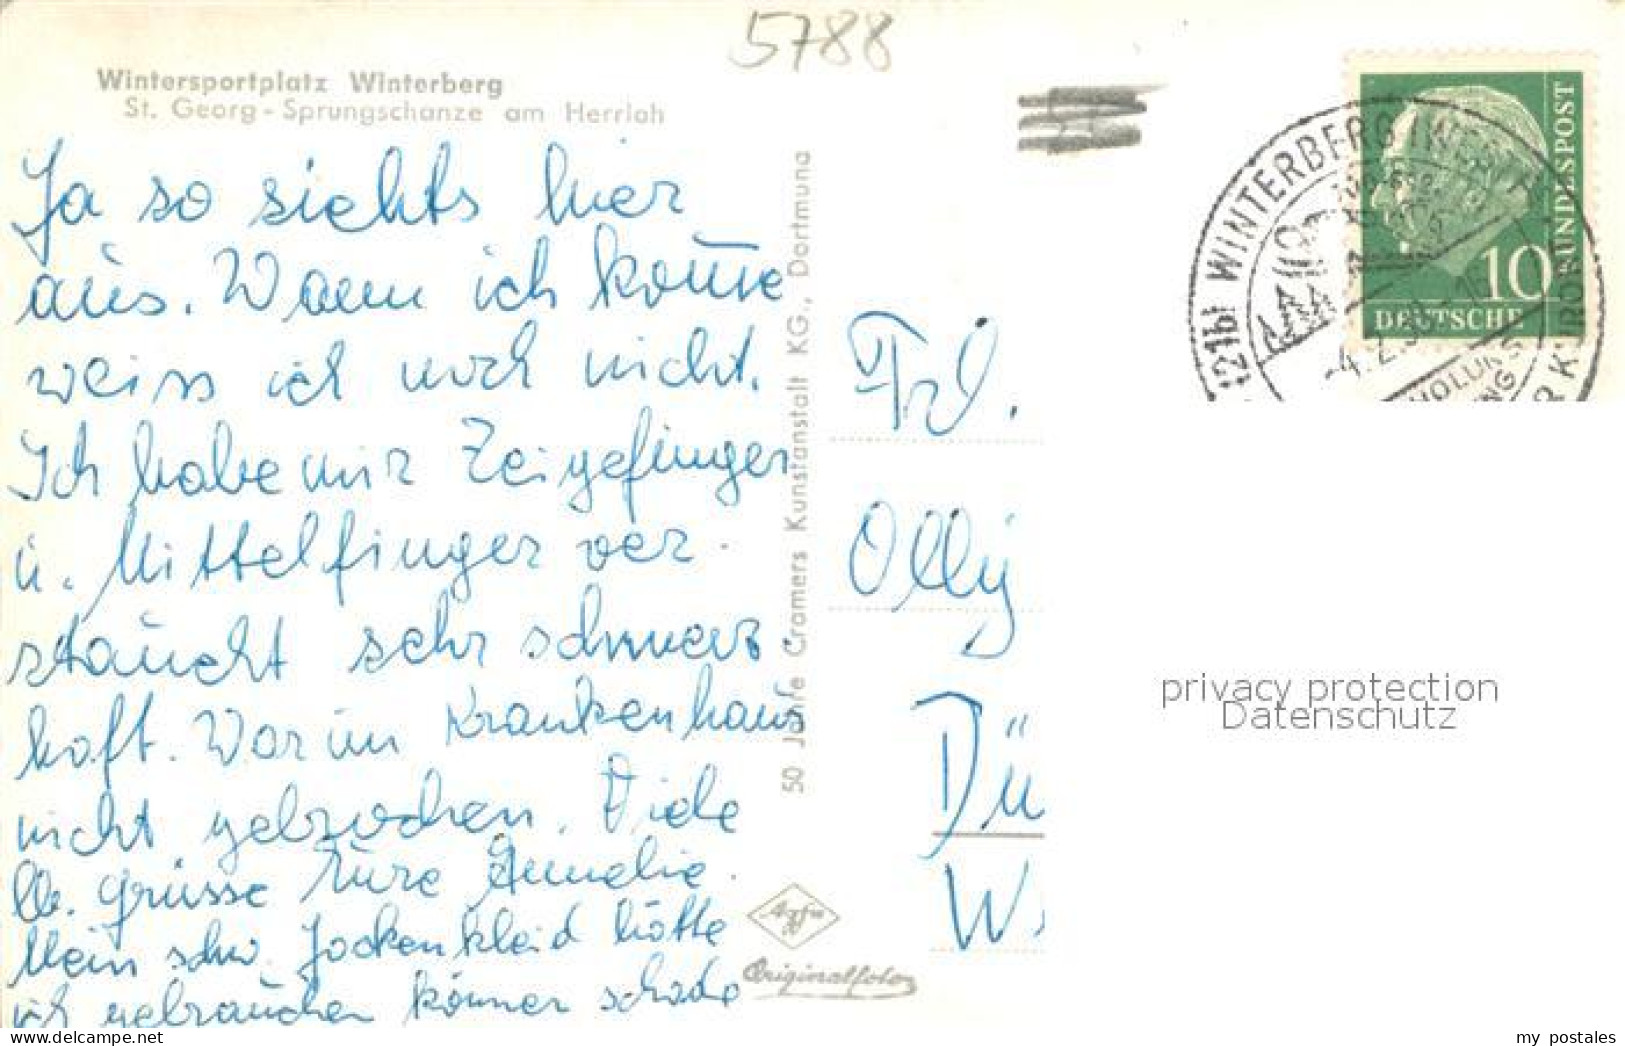 5788
Wintersportplatz Winterberg
St. Georg-Sprungschanze am Herrloh
Ja so siehts hier
aus. Wann ich komme
weiss ich noch nicht.
Ich habe mir Zeigefinger
u. Mittelfinger ver-
staucht sehr schmerz-
haft. War im Krankenhaus
nicht gebrochen. Viele
lb. Grüsse Eure Annelie.
Mein schw. Jackenkleid hätte
ich gebrauchen können schade
50 Jahre Cramers Kunstanstalt KG., Dortmund
Agfa
Originalfoto
Frl.
Olly
Dü
W
(21b) WINTERBERG (WESTF
-4.2.5
HOLUNGS
NG
KURO
DEUTSCHE
BUNDESPOST
10
privacy protection
Datenschutz
www.delcampe.net
my postales